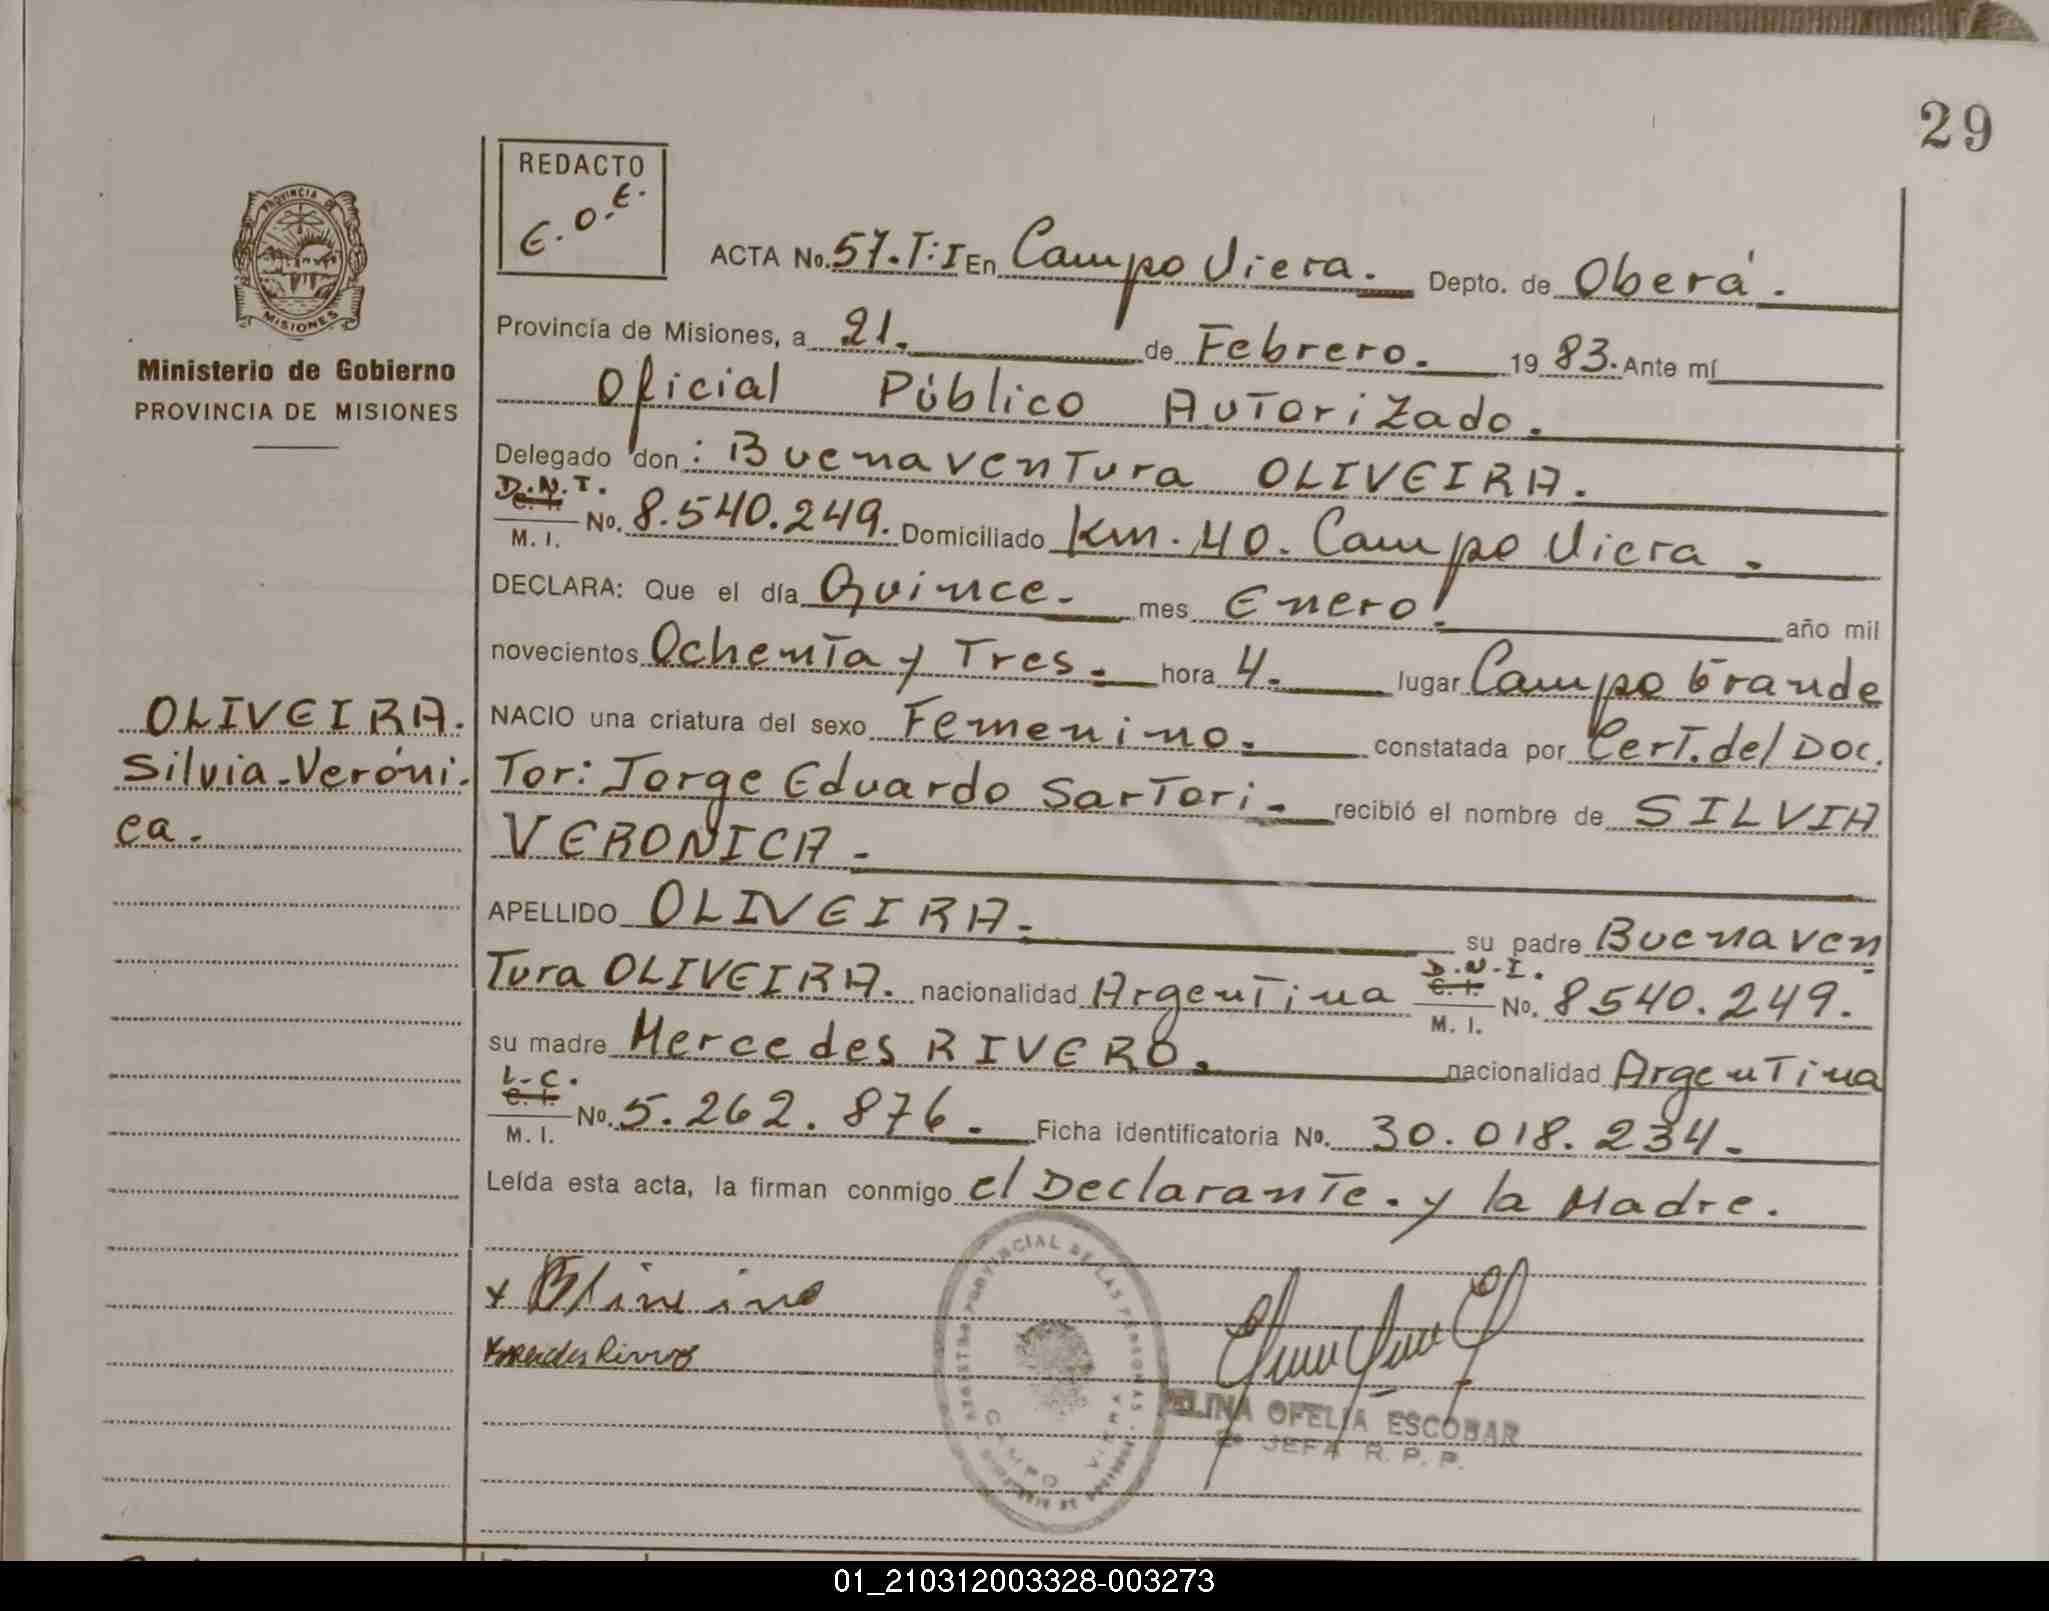 29
REDACTO
E.O.E.
PROVINCIA DE
MISIONES
Ministerio de Gobierno
PROVINCIA DE MISIONES
ACTA No. 57.T:I En Campo Viera. Depto. de Oberá.
Provincia de Misiones, a 21. de Febrero. 19 83. Ante mí
Oficial Público Autorizado.
Delegado don: Buenaventura OLIVEIRA.
D.N.I.
C. I.
M. I. No. 8.540.249. Domiciliado Km. 40. Campo Viera.
DECLARA: Que el día Quince. mes Enero. año mil
novecientos Ochenta y Tres. hora 4. lugar Campo Grande
NACIO una criatura del sexo Femenino. constatada por Cert. del Doc.
Tor: Jorge Eduardo Sartori. recibió el nombre de SILVIA
VERONICA.
APELLIDO OLIVEIRA. su padre Buenaven
Tura OLIVEIRA. nacionalidad Argentina D.N.I. C. I. M. I. No. 8540.249.
su madre Mercedes RIVERO. nacionalidad Argentina
L.C.
C. I.
M. I. No. 5.262.876. Ficha identificatoria No. 30.018.234.
Leída esta acta, la firman conmigo el Declarante. y la Madre.
OLIVEIRA.
Silvia.Veróni.
ca.
PROVINCIAL DE LAS PERSONAS
CAMPO VIERA
ELINA OFELIA ESCOBAR
JEFA R. P. P.
01_210312003328-003273